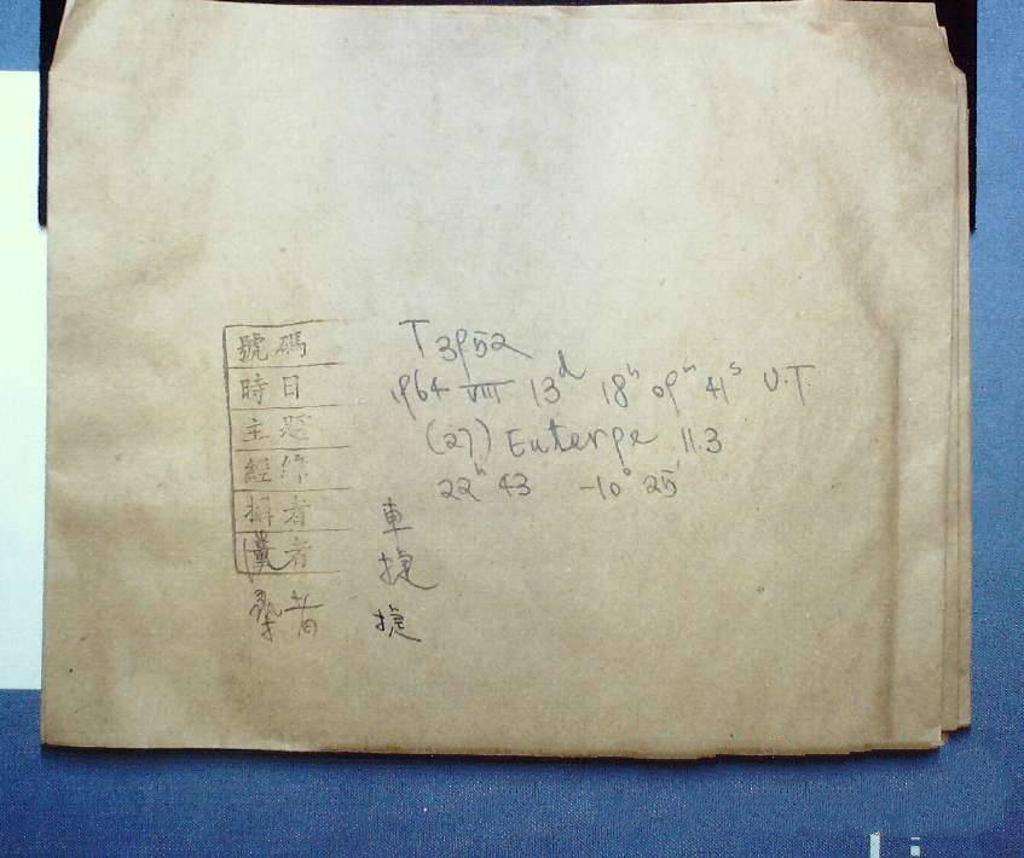 號碼 T3952
時日 1964 VIII 13d 18h 09m 41s U.T.
主題 (27) Euterpe 11.3
經緯 22h 43 -10° 25'
攝者 車
者 捷
者 捷